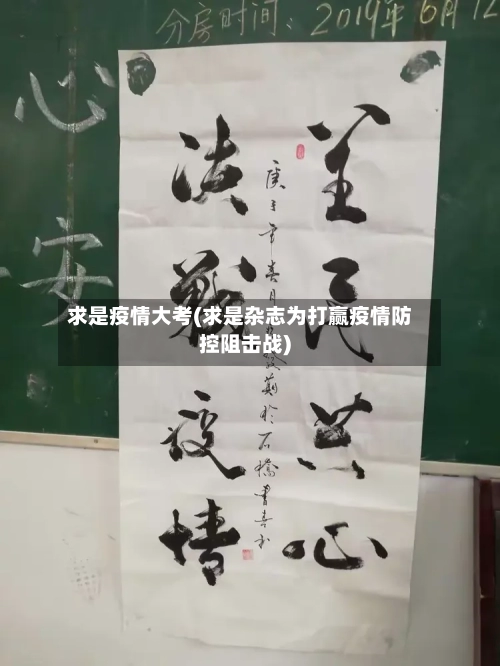 分房时间：2019年6月12
心
安
全民共心
决战疫情
庚子年春月
于石桥书
求是疫情大考(求是杂志为打赢疫情防
控阻击战)